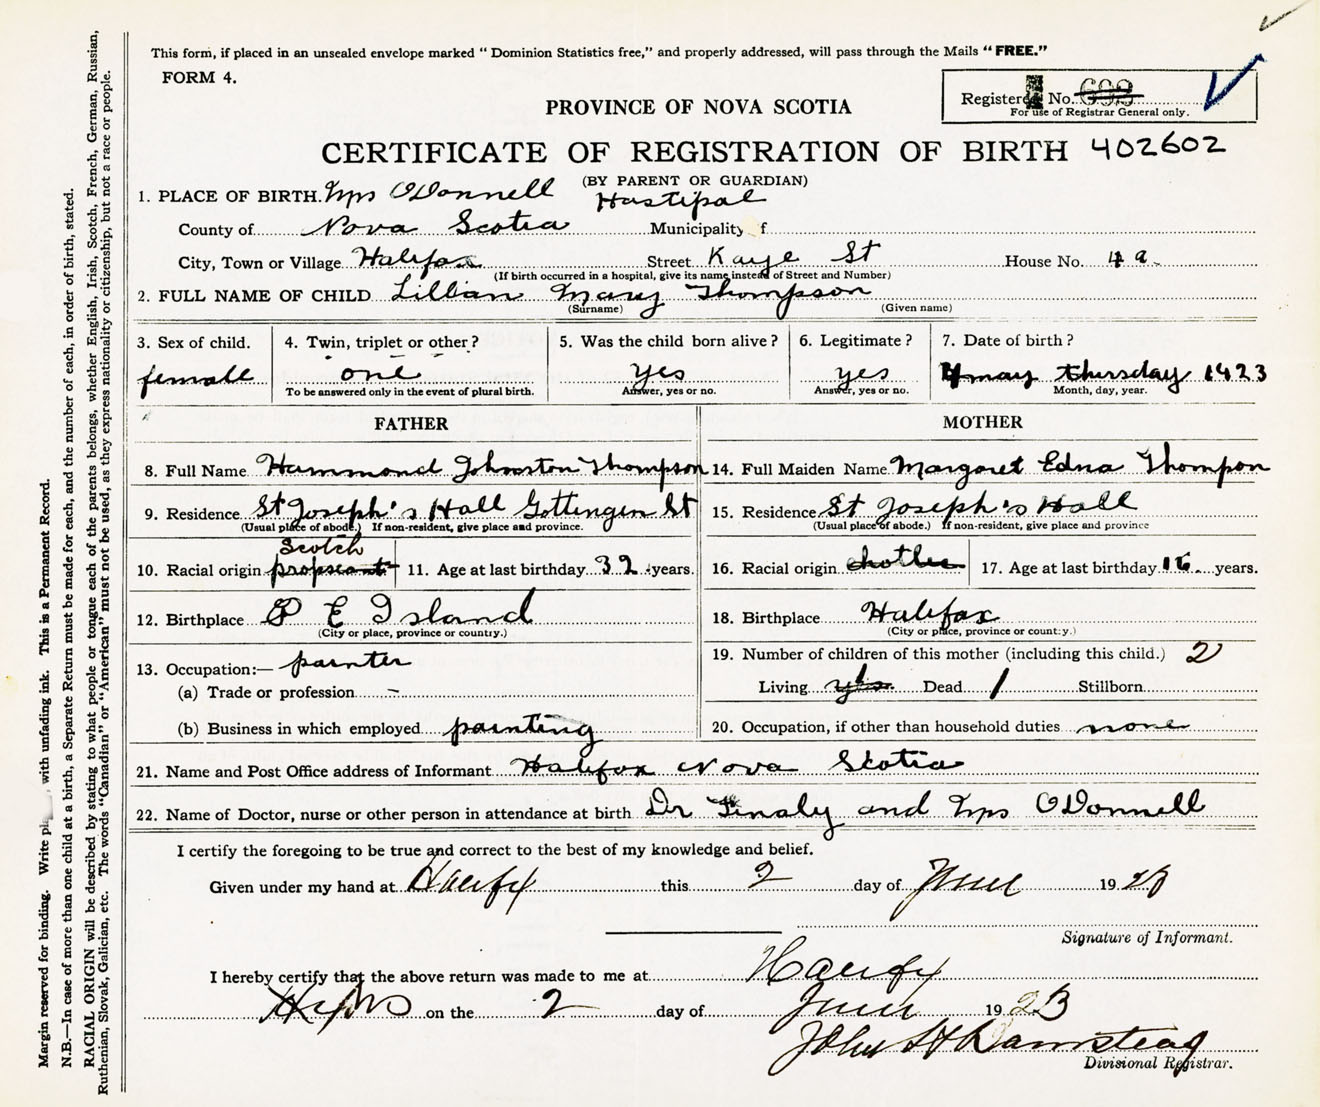 This form, if placed in an unsealed envelope marked "Dominion Statistics free," and properly addressed, will pass through the Mails "FREE."
FORM 4.
Registered No. 699
For use of Registrar General only.
PROVINCE OF NOVA SCOTIA
CERTIFICATE OF REGISTRATION OF BIRTH 402602
(BY PARENT OR GUARDIAN)
1. PLACE OF BIRTH. Mrs ODonnell Hastipal
County of Nova Scotia Municipality of
City, Town or Village Halifax Street Kaye St House No. 4 a
(If birth occurred in a hospital, give its name instead of Street and Number)
2. FULL NAME OF CHILD Lillian Mary Thompson
(Surname) (Given name)
3. Sex of child. 4. Twin, triplet or other? 5. Was the child born alive? 6. Legitimate? 7. Date of birth?
female one yes yes may thursday 1923
To be answered only in the event of plural birth. Answer, yes or no. Answer, yes or no. Month, day, year.
FATHER MOTHER
8. Full Name Hammond Johnston Thompson 14. Full Maiden Name Margaret Edna Thompon
9. Residence St Joseph's Hall Gottingen St 15. Residence St Joseph's Hall
(Usual place of abode.) If non-resident, give place and province. (Usual place of abode.) If non-resident, give place and province
Scotch
10. Racial origin 11. Age at last birthday 32 years. 16. Racial origin 17. Age at last birthday years.
12. Birthplace P E Island 18. Birthplace Halifax
(City or place, province or country.) (City or place, province or country.)
13. Occupation:— painter 19. Number of children of this mother (including this child.) 2
(a) Trade or profession – Living yes 1 Dead 1 Stillborn
(b) Business in which employed painting 20. Occupation, if other than household duties none
21. Name and Post Office address of Informant Halifax Nova Scotia
22. Name of Doctor, nurse or other person in attendance at birth Dr Finaly and Mrs ODonnell
I certify the foregoing to be true and correct to the best of my knowledge and belief.
Given under my hand at Halifx this 2 day of June 1923
Signature of Informant.
I hereby certify that the above return was made to me at Halifx
on the 2 day of June 1923
John H Barnstead
Divisional Registrar.
Margin reserved for binding. Write with unfading ink. This is a Permanent Record.
N.B.—In case of more than one child at a birth, a Separate Return must be made for each, and the number of each, in order of birth, stated.
RACIAL ORIGIN will be described by stating to what people or tongue each of the parents belongs, whether English, Irish, Scotch, French, German, Russian,
Ruthenian, Slovak, Galician, etc. The words "Canadian" or "American" must not be used, as they express nationality or citizenship, but not a race or people.